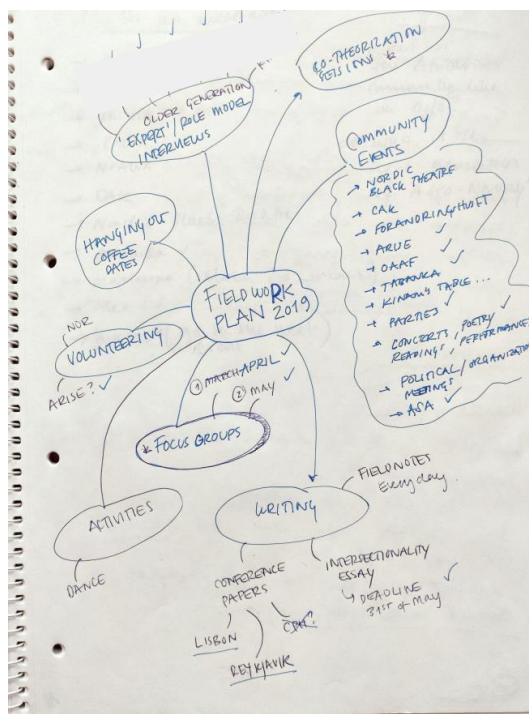 CO-THEORIZATION
SESSIONS *
OLDER GENERATION
'EXPERT'/ROLE MODEL
INTERVIEWS
Community
EVENTS
→ NORDIC
BLACK THEATRE
→ CAK
→ FORANDRINGSHUSET
→ ARISE ✓
→ OAAF ✓
→ TABANKA ✓
→ KINAM'S TABLE ...
→ PARTIES ✓
CONCERTS, POETRY ✓
READINGS, PERFORMANCE
→ POLITICAL/ORGANIZATION
MEETINGS
→ ASA ✓
HANGING OUT
COFFEE
DATES
FIELDWORK
PLAN 2019
NOR
VOLUNTEERING
ARISE? ✓
① MARCH-APRIL ✓
② MAY ✓
* FOCUS GROUPS
ACTIVITIES
DANCE
WRITING
FIELDNOTES
Everyday
CONFERENCE
PAPERS
LISBON
REYKJAVIK
CPH
INTERSECTIONALITY
ESSAY
↳ DEADLINE ✓
31st of May